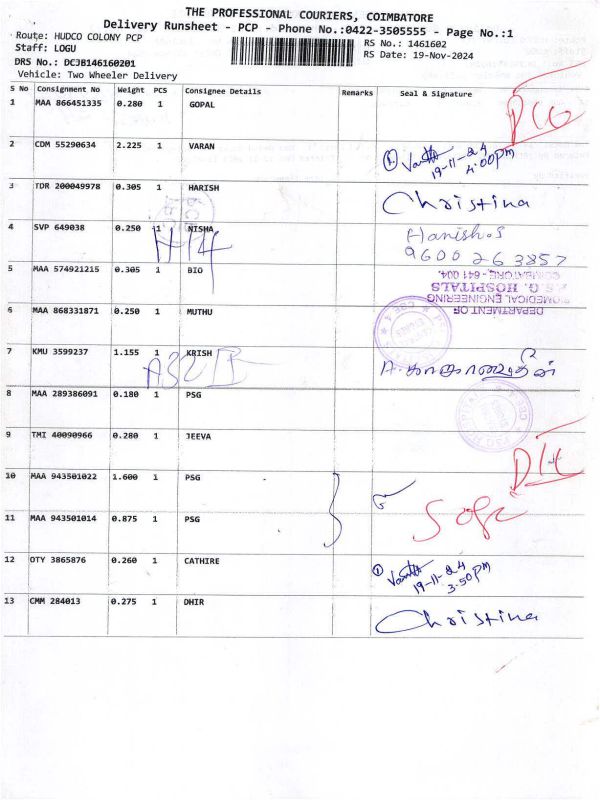 THE PROFESSIONAL COURIERS, COIMBATORE
Delivery Runsheet - PCP - Phone No.:0422-3505555 - Page No.:1
Route: HUDCO COLONY PCP
RS No.: 1461602
Staff: LOGU
RS Date: 19-Nov-2024
DRS No.: DCJB146160201
Vehicle: Two Wheeler Delivery
S No Consignment No Weight PCS Consignee Details Remarks Seal & Signature
1 MAA 866451335 0.280 1 GOPAL
2 CDM 55290634 2.225 1 VARAN
19-11-24
4:00pm
3 TDR 200049978 0.305 1 HARISH Christina
4 SVP 649038 0.250 1 NISHA Harish.S
H14
9600263857
5 MAA 574921215 0.305 1 BIO
COIMBATORE - 641 004.
P.S.G. HOSPITALS
BIOMEDICAL ENGINEERING
DEPARTMENT OF
6 MAA 868331871 0.250 1 MUTHU
7 KMU 3599237 1.155 1 KRISH
8 MAA 289386091 0.180 1 PSG
9 TMI 40090966 0.280 1 JEEVA
10 MAA 943501022 1.600 1 PSG
11 MAA 943501014 0.875 1 PSG
12 OTY 3865876 0.260 1 CATHIRE
19-11-24
3:50pm
13 CMM 284013 0.275 1 DHIR Christina